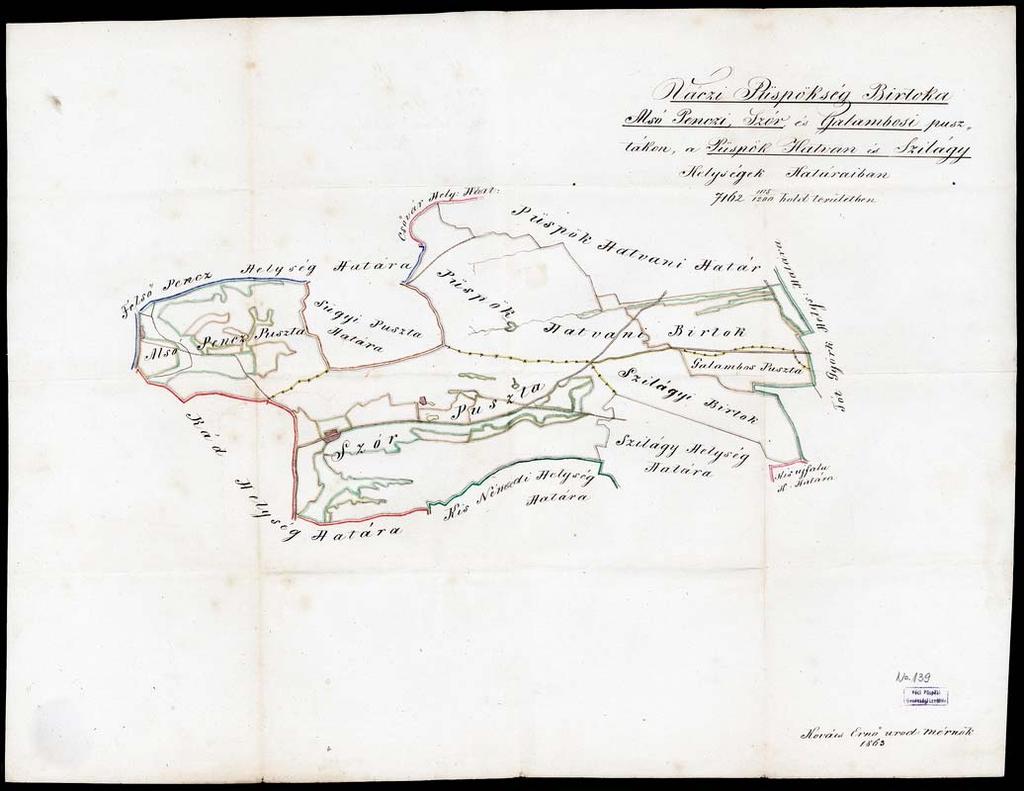 Váczi Püspökség Birtoka
Alsó Penczi, Szór és Galambosi pusz„
tákon, a Püspök Hatvan és Szilágy
Helységek Határaiban
7162 1115/1200 hold területben
Csővár Hely: Hat:
Püspök Hatvani Határ
Felső Pencz Helység Határa
Püspök
Hatvani Birtok
Tót Györk Hely: Határa
Sügyi Puszta
Határa
Alsó Pencz Puszta
Galambos Puszta
Szilágyi Birtok
Szór Puszta
Rád Helység Határa
Szilágy Helység
Határa
Kis Némedi Helység
Határa
Kisujfalu
H. Határa
No. 139
Váci Püspöki
Kovács Ernő urod: mérnök
1863